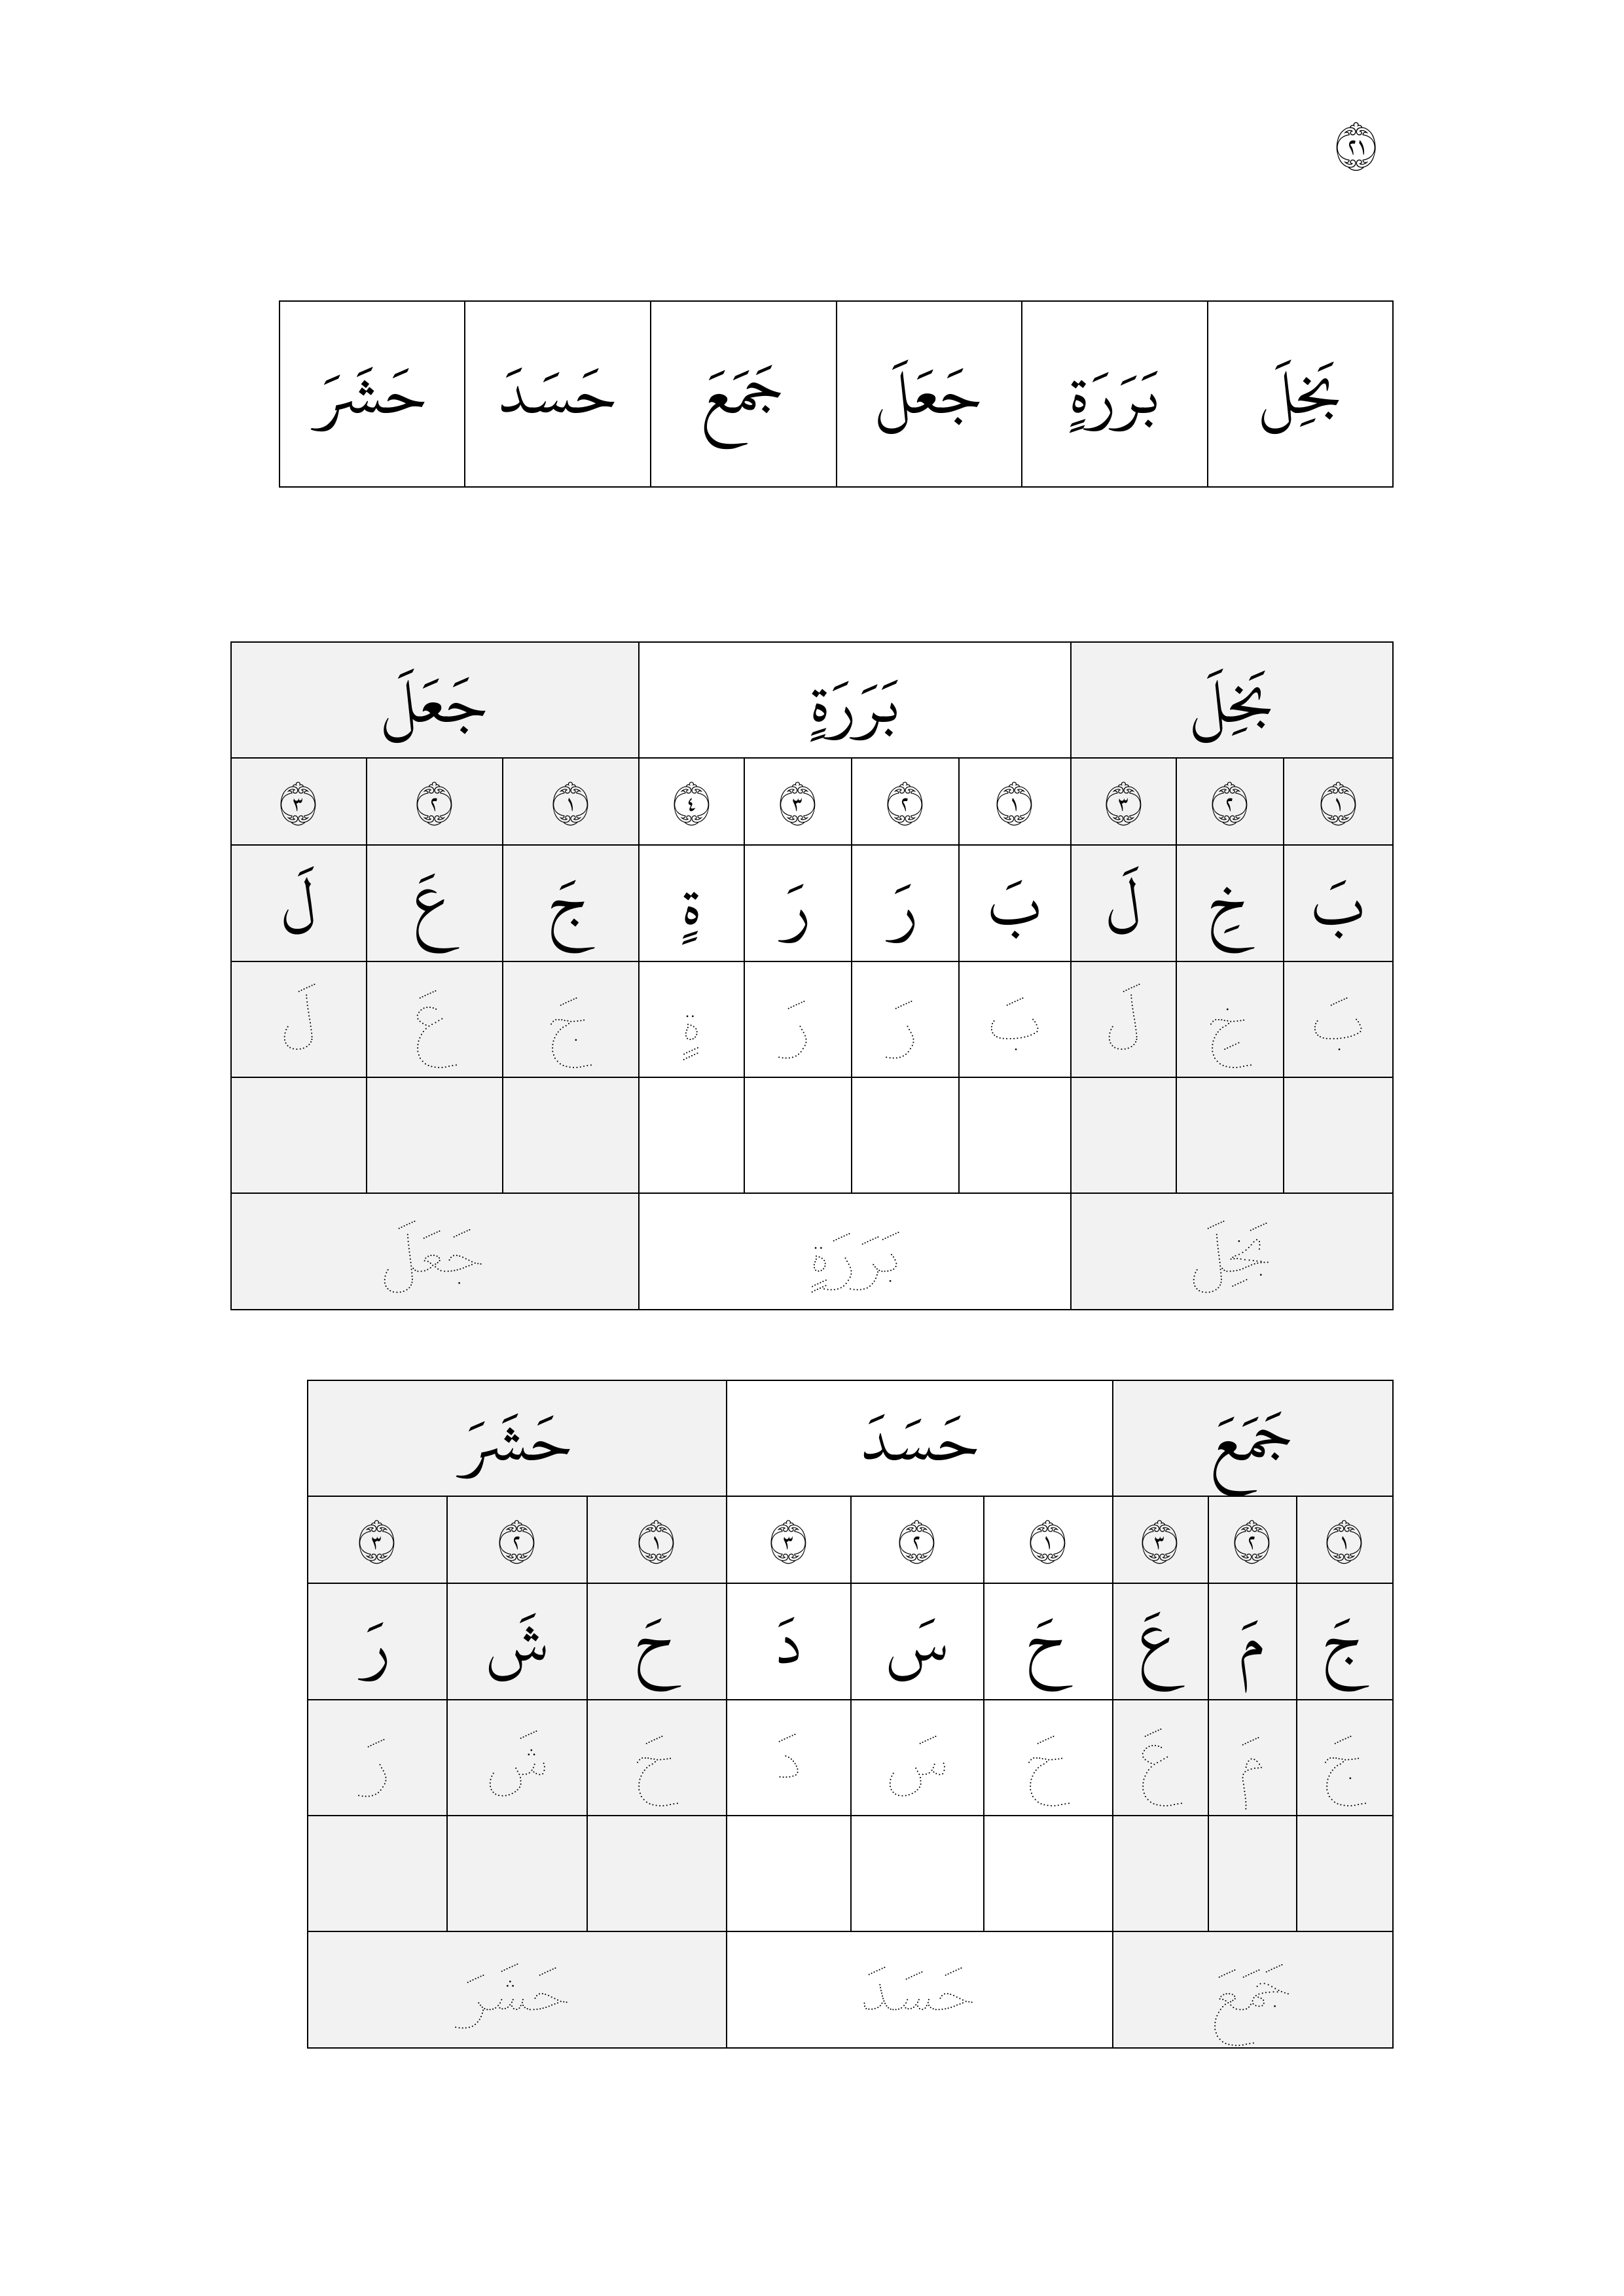 ٢١
بَخِلَ بَرَرَةٍ جَعَلَ جَمَعَ حَسَدَ حَشَرَ
بَخِلَ بَرَرَةٍ جَعَلَ
١ ٢ ٣ ١ ٢ ٣ ٤ ١ ٢ ٣
بَ خِ لَ بَ رَ رَ ةٍ جَ عَ لَ
بَ خِ لَ بَ رَ رَ ةٍ جَ عَ لَ
بَخِلَ بَرَرَةٍ جَعَلَ
جَمَعَ حَسَدَ حَشَرَ
١ ٢ ٣ ١ ٢ ٣ ١ ٢ ٣
جَ مَ عَ حَ سَ دَ حَ شَ رَ
جَ مَ عَ حَ سَ دَ حَ شَ رَ
جَمَعَ حَسَدَ حَشَرَ